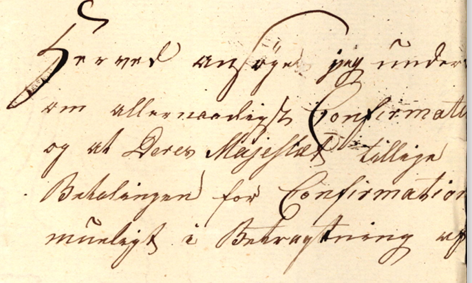 Herved ansøger jeg under
om allernaadigst Confirmati
og at Deres Majestæt tillige
Betalingen for Confirmation
mueligt i Betragtning af